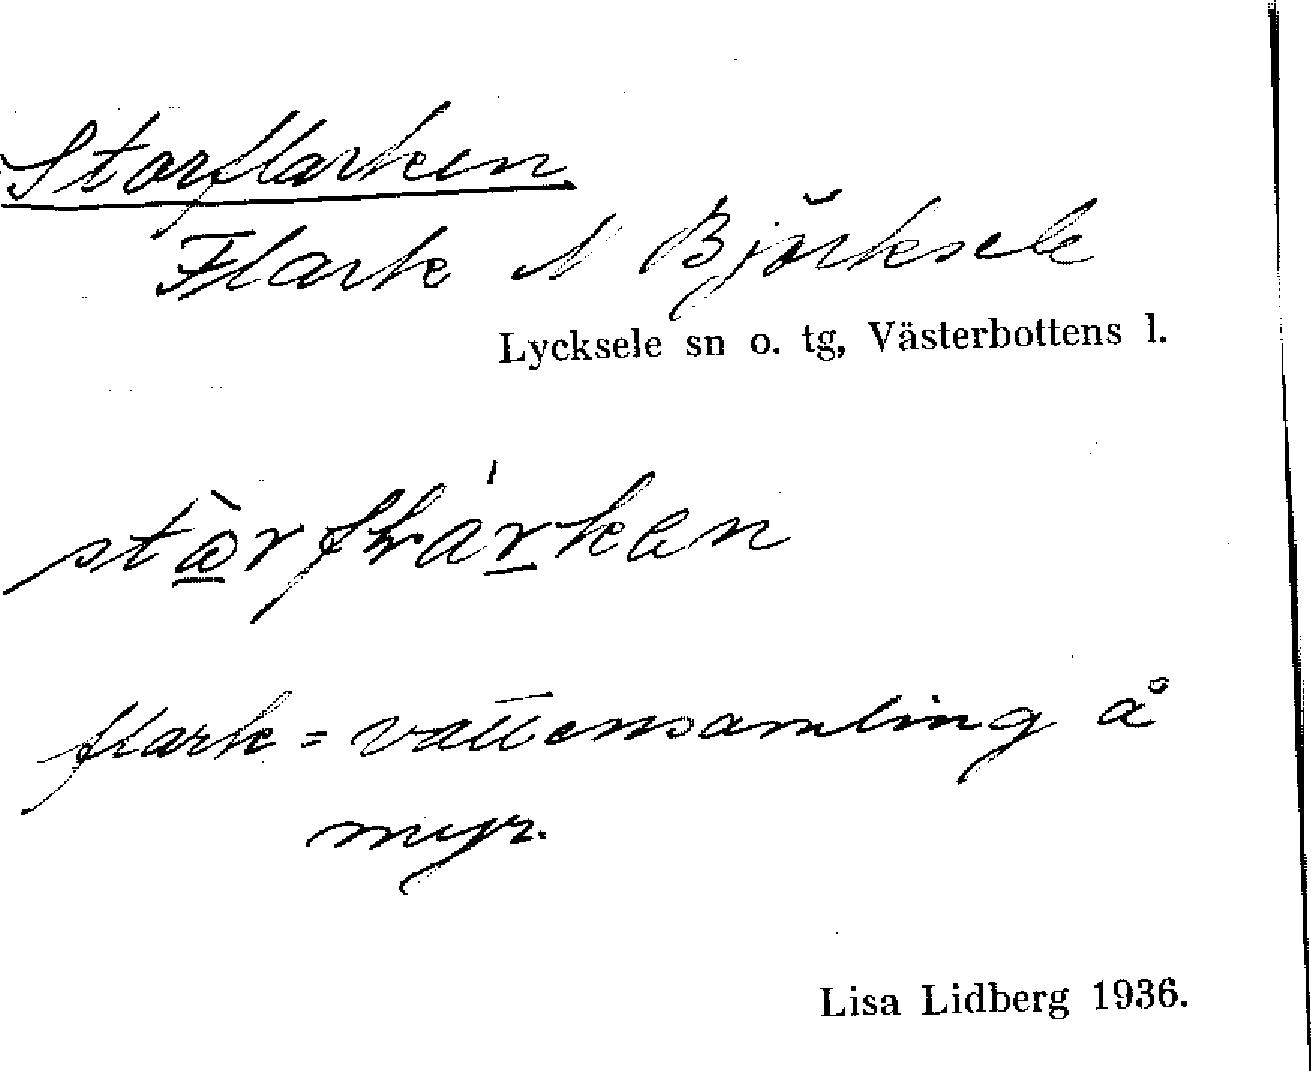 Storflarken
Flark N Björksele
Lycksele sn o. tg, Västerbottens l.
flark = vattensamling å
myr.
Lisa Lidberg 1936.